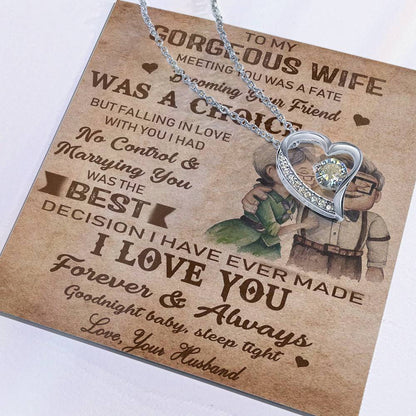 TO MY
GORGEOUS WIFE
MEETING YOU WAS A FATE
Becoming Your Friend
WAS A CHOICE
BUT FALLING IN LOVE
WITH YOU I HAD
No Control &
Marrying You
WAS THE
BEST
DECISION I HAVE EVER MADE
I LOVE YOU
Forever & Always
Goodnight baby, sleep tight
Love, Your Husband